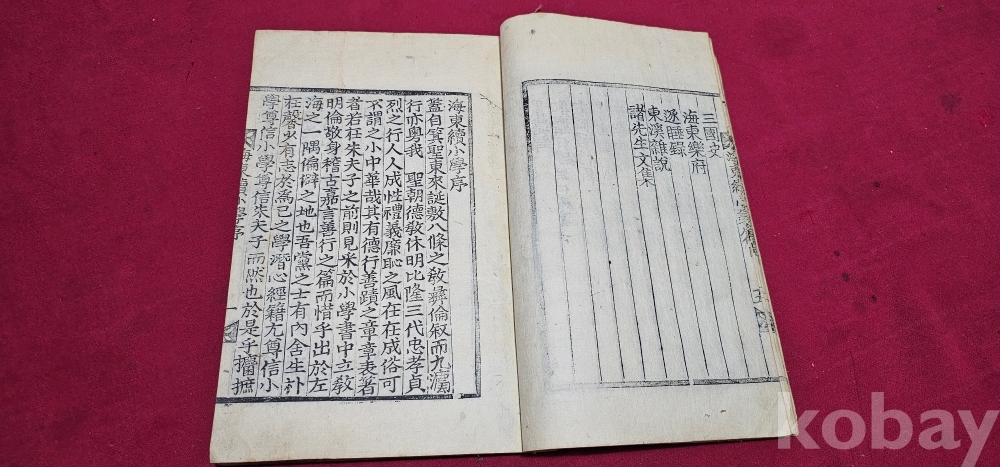 三國史
海東樂府
遂睡錄
東溪雜說
諸先生文集
海東續小學序
蓋自箕聖東來誕敷八條之敎彛倫叙而九
行亦粤我 聖朝德敎休明比隆三代忠孝貞
烈之行人人成性禮義廉恥之風在在成俗可
不謂之小中華哉其有德行善蹟之章章表著
者若在朱夫子之前則見采於小學書中立敎
明倫敬身稽古嘉言善行之篇而惜乎出於左
海之一隅偏僻之地也吾黨之士有內舍生朴
在馨以有志於爲己之學潛心經籍尤尊信小
學尊信小學尊信朱夫子而然也於是乎攟摭
海東續小學序
kobay